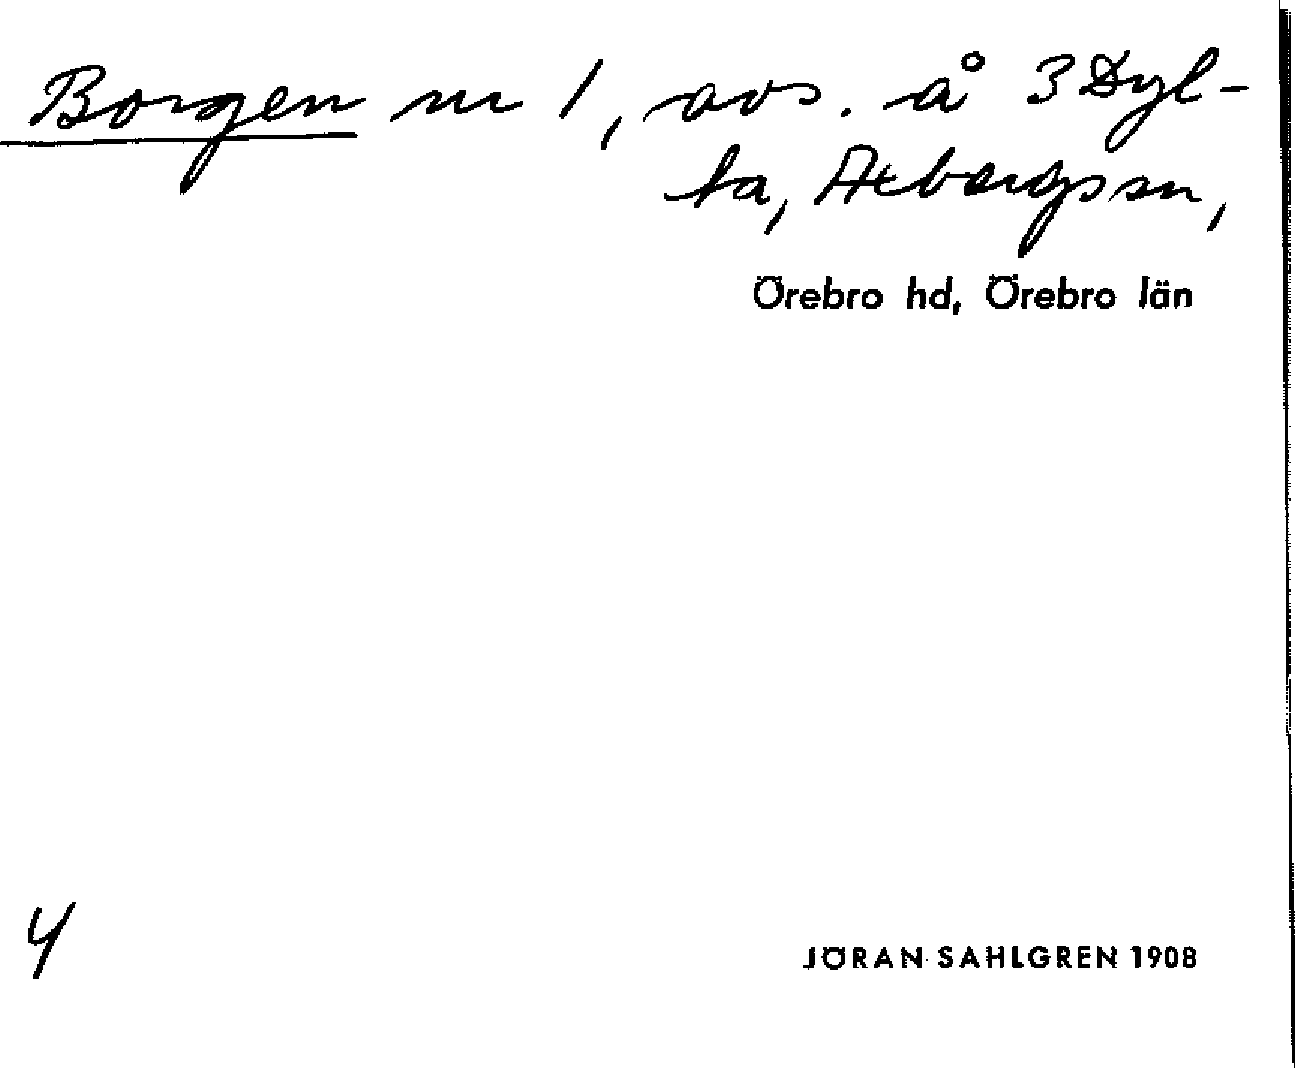 Borgen nr 1, avs. å 3 Dyl-
ta, Axbergs sn,
Örebro hd, Örebro län
4
JÖRAN SAHLGREN 1908